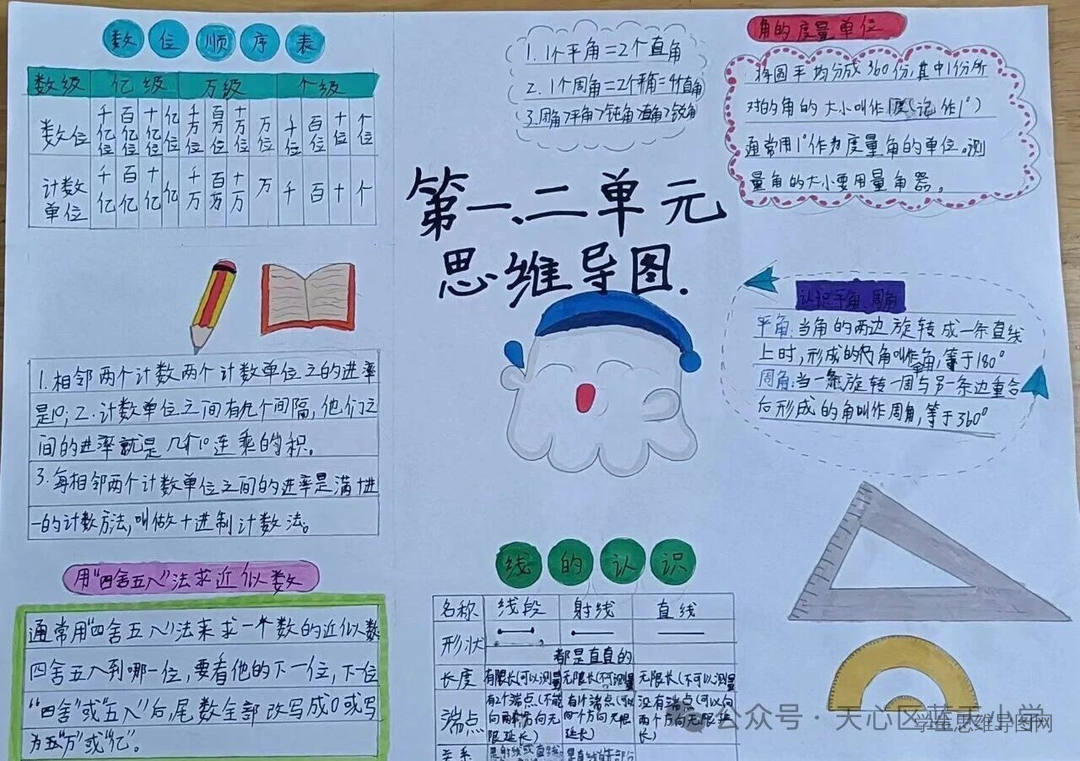 数位顺序表
数级 亿级 万级 个级
数位 千亿位 百亿位 十亿位 亿位 千万位 百万位 十万位 万位 千位 百位 十位 个位
计数单位 千亿 百亿 十亿 亿 千万 百万 十万 万 千 百 十 个
1.相邻两个计数两个计数单位之的进率
是10;2.计数单位之间有几个间隔,他们之
间的进率就是几个10连乘的积。
3.每相邻两个计数单位之间的进率是满十进
一的计数方法,叫做十进制计数法。
用"四舍五入"法求近似数
通常用"四舍五入"法来求一个数的近似数
四舍五入到哪一位,要看他的下一位,下一位
"四舍"或"五入"后,尾数全部改写成0或写
为"万"或"亿"。
1.1个平角=2个直角
2.1个周角=2个平角=4个直角
3.周角>平角>钝角>直角>锐角
第一、二单元
思维导图.
线的认识
名称 线段 射线 直线
形状
都是直直的
长度 有限长(可以测量 无限长(不可测量 无限长(不可以测量
端点 有2个端点(不能向两方向无限延长) 有1个端点(可以向个方向无限延长) 没有端点(可以向两个方向无限延长)
关系
角的度量单位
将圆平均分成360份,其中1份所
对的角的大小叫作 记作1°)
通常用1°作为度量角的单位。测
量角的大小要用量角器。
认识平角、周角
平角:当角的两边旋转成一条直线
上时,形成的角叫作平角,等于180°
周角:当一条旋转一周与另一条边重合
后形成的角叫作周角,等于360°
公众号·天心区蓝天小学
学生思维导图网